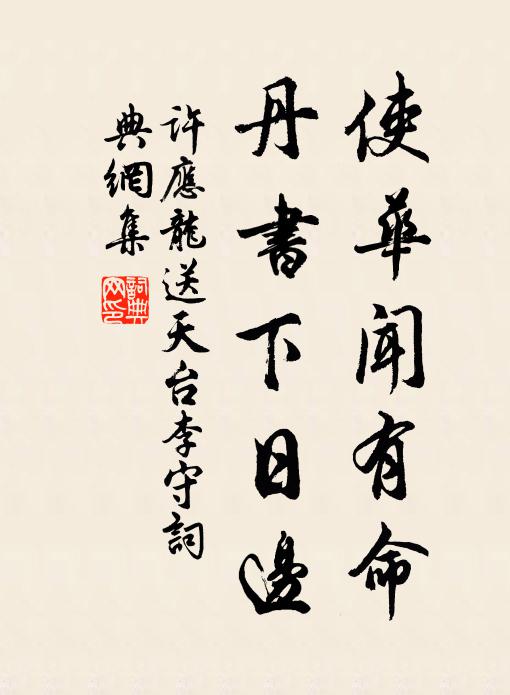 使華聞有命
丹書下日邊
許應龍送天台李守詞
典網集
詞典
网印